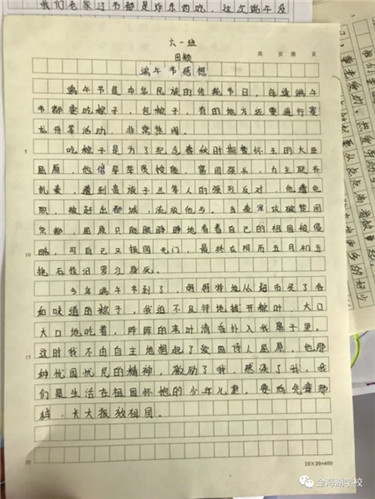 们老家过节都是炸东西吃，这次端午应
六一班
页 第 页
田颖
端午节感想
端午节是中华民族的传统节日，每逢端午
节都要吃粽子，包粽子，有的地方还要进行赛
龙舟等活动，非常热闹。
吃粽子是为了纪念春秋时期楚怀王的大臣
屈原，他倡导举贤授能，富国强兵，力主联齐
抗秦，遭到贵族子兰等人的强烈反对，他遭免
职，被赶出都城，流放他乡。当秦军攻破楚国
京都，屈原只能眼睁睁地看着自己的祖国被侵
略，可自己又报国无门，最终在阴历五月初五
抱石投汨罗江身死。
今年端午节到了，妈妈特地从超市买了各
如味道的粽子，我迫不及待地拨开粽叶，大口
大口地吃着，阵阵的枣叶清香扑入我鼻子里。
这时我不由自主地想起了爱国诗人屈原，他那
种忧国忧民的精神，激励了我，感染了我。我
们是生活在祖国怀抱的少年儿童，要好好学习
，长大报效祖国。
20×20=400
金海湖学校